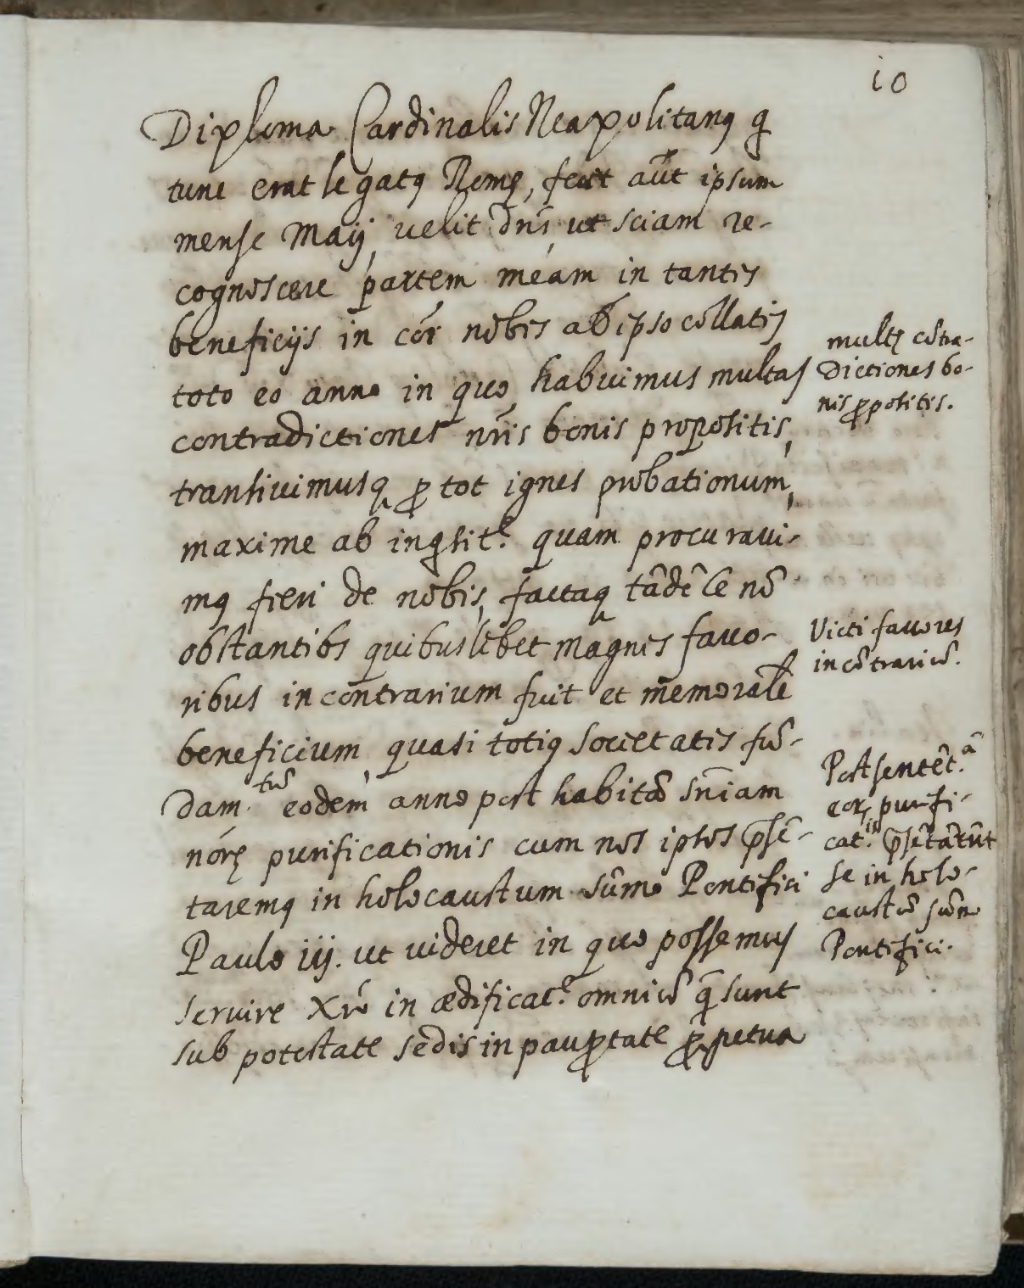 10
Diploma Cardinalis Neapolitanꝯ q̄
tunc erat legatꝯ Romę, fecit aūt ipsum
mense Maij, uelit Dn̄s ut sciam re-
cognoscere partem meam in tantis
beneficijs in cōi nobis ab ipso collatis
toto eo anno in quo habuimus multas
contradictiones nr̄is bonis propositis,
transiuimusq ꝓ tot ignes probationum,
maxime ab inqsit.ᵉ quam procuraui-
mꝯ fieri de nobis, factaq tādē
obstantibs quibuslibet magnis fauo-
ribus in contrarium fuit et memorale
beneficium quasi totiꝯ Societatis fū-
dam.tū eodem anno post habitā sn̄iam
nōrę purificationis cum nos ipsos p̄sē-
taremꝯ in holocaustum sūmo Pontifici
Paulo iij. ut uideret in quo possemus
seruire Xr̄o in ædificat.ᵉ omniū q̄ sunt
sub potestate sedis in pauꝑtate ꝑpetua
multę cōtra-
dictiones bo-
nis ꝓpositis.
Victi fauores
in cōtrariū.
Post sentēt.ā
eorę purifi-
cat.is p̄sētārūt
se in holo-
caustū sūmo
Pontifici.